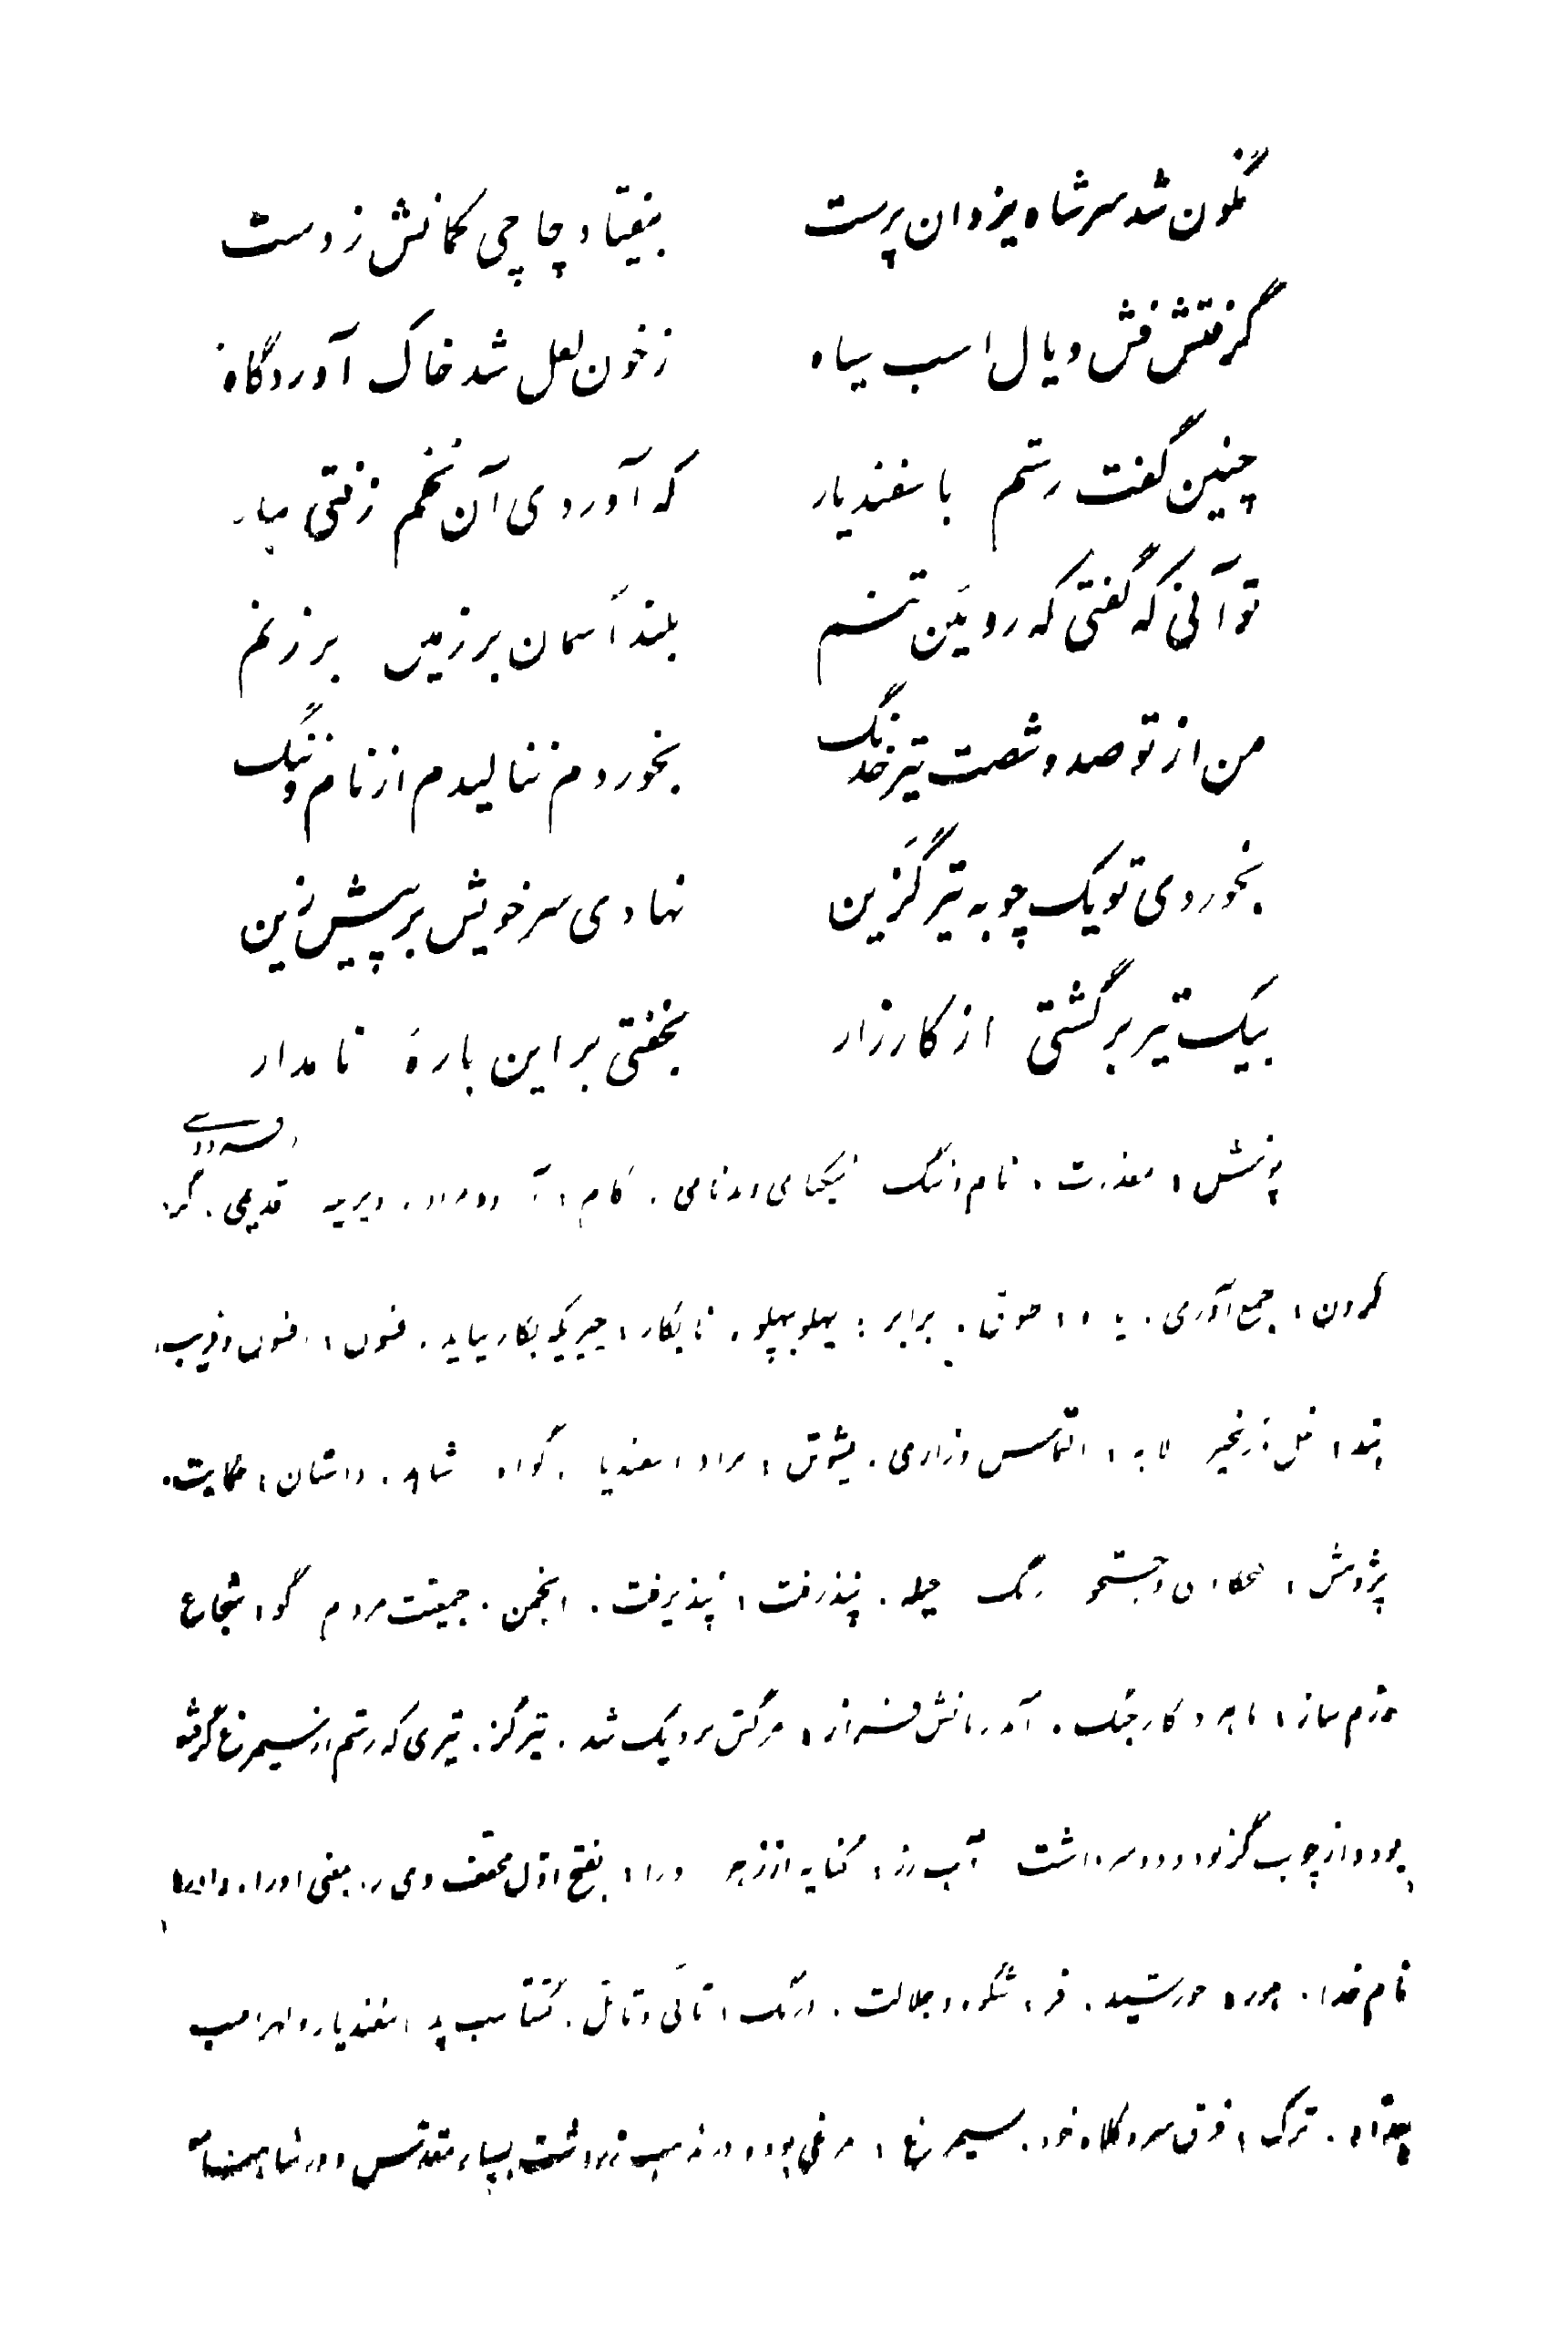 نگون شد سر شاه یزدان پرست بیفتاد چاچی کمانش ز دست
گرفتش فش و یال اسب سیاه ز خون لعل شد خاک آوردگاه
چنین گفت رستم باسفندیار که آوردی آن تخم زفتی ببار
تو آنی که گفتی که روئین تنم بلند آسمان بر زمین برزنم
من از تو صد و شصت تیر خدنگ بخوردم ننالیدم از نام و ننگ
بخوردی تو یک چوبه تیر گزین نهادی سر خویش بر پیش زین
بیک تیر برگشتی از کارزار بخفتی بر این بارهٔ نامدار
فردوسی
پوزش، معذرت، نام و ننگ نیکنامی و بدنامی. کام، دیرینه قدیمی. گرد
کردن، جمع آوری. برابر: پهلو بپهلو. نابکار، چیزیکه بکار نیاید. فسون، افسون و فریب.
بند، غل و زنجیر لابه، التماس و زاری. پشوتن، برادر اسفندیار. گواه شاهد. داستان، حکایت.
پژوهش، کنجکاوی و جستجو رنگ حیله. نپذرفت، نپذیرفت. انجمن. جمعیت مردم گو، شجاع
رزم ساز، ماهر در کار جنگ. آمد زمانش فراز، مرگش نزدیک شد. تیر گز. تیری که رستم از سیمرغ گرفته
بود و از چوب گز بود و دو سر داشت آب رز، کنایه از زهر ورا، بفتح اول مخفف وی را. بمعنی او را.
نام خدا. هور، خورشید. فر، شکوه و جلالت. درنگ، تأنی و تأمل. گشتاسب پدر اسفندیار و لهراسب
ترگ، فرق سر و کلاه خود. سیمرغ، مرغی بود و در مذهب زردشت بسیار مقدس و در شاهنامه